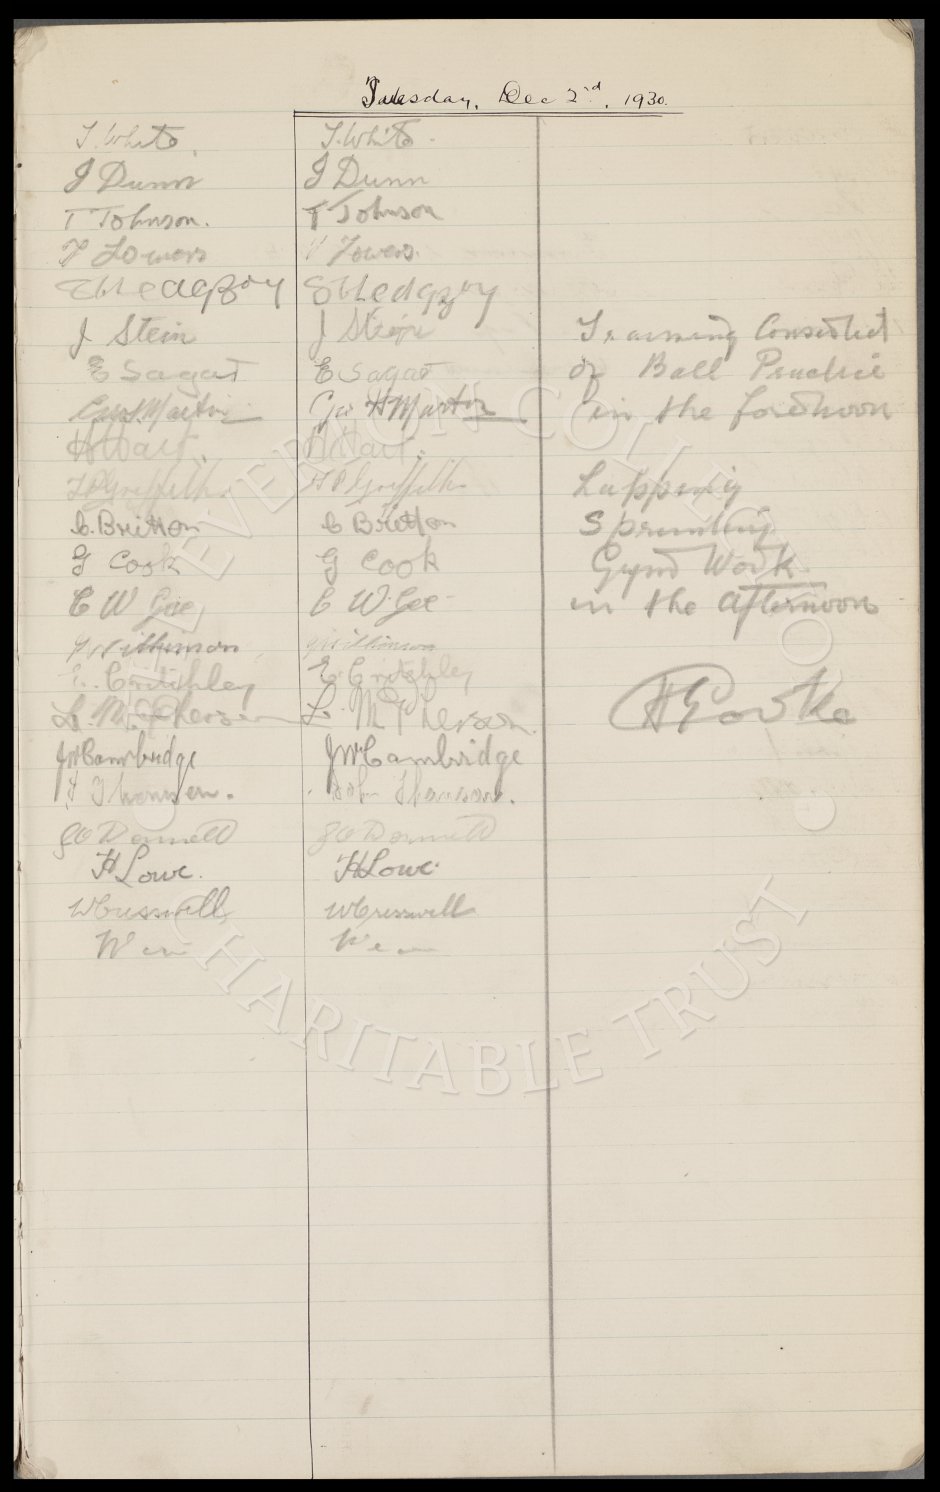 Tuesday, Dec 2nd, 1930.
T. White. T. White.
J Dunn J Dunn
T Johnson. T Johnson
Towers Towers.
J Stein J Stein
E Sagar E Sagar
Geo H Martin Geo H Martin
H Hart. H Hart.
T P Griffiths. T P Griffiths
C. Britton C Britton
G Cook G Cook
C W Gee C W Gee
J Wilkinson J Wilkinson
E. Critchley E. Critchley
L. McPherson L. McPherson.
JW Cambridge JW Cambridge
J Thomson. John Thomson.
H Lowe. H Lowe.
W Cresswell W Cresswell
Training Consisted
of Ball Practice
in the forenoon
Lapping
Sprinting
Gym Work
in the afternoon
H E Cooke
THE EVERTON COLLECTION
CHARITABLE TRUST